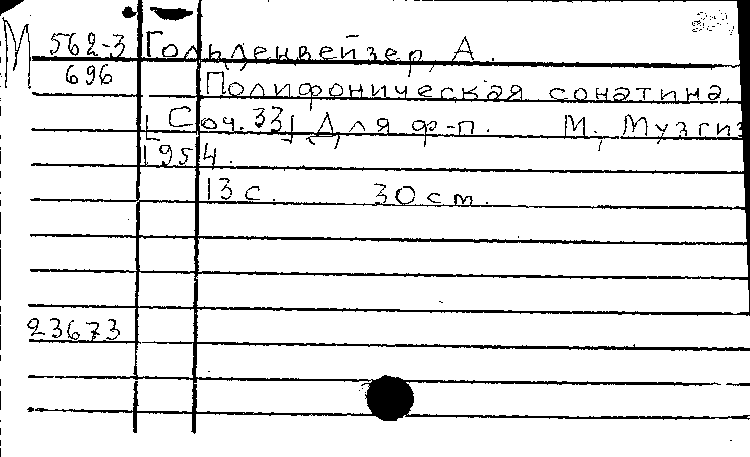 М 562-3 Гольденвейзер, А.
696 Полифоническая сонатина.
[Соч. 33] Для ф-п. М., Музгиз
1954.
13 с. 30 см.
23673